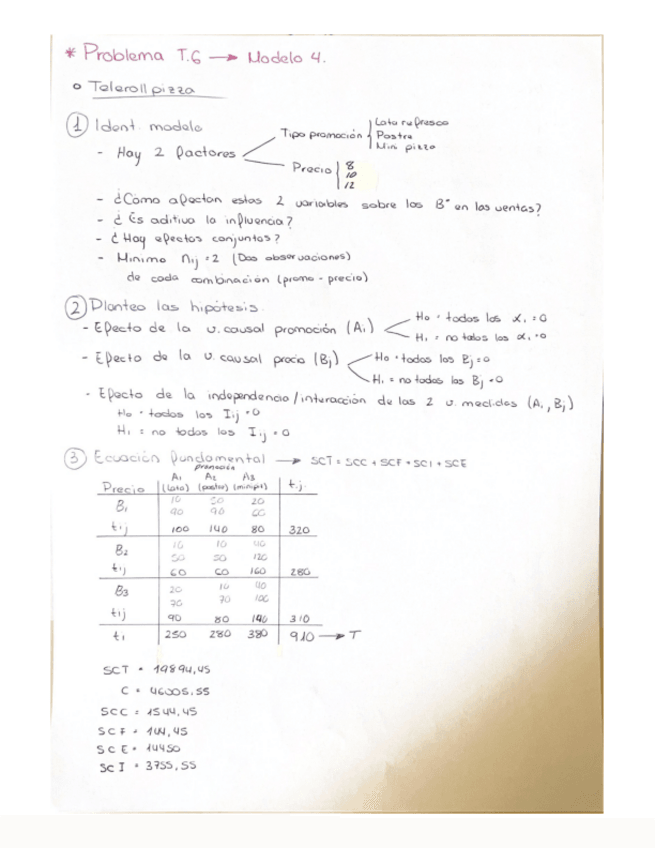 * Problema T.6 → Modelo 4.
o Teleroll pizza
① Ident. modelo
- Hay 2 factores
Tipo promoción
Lata refresco
Postre
Mini pizza
Precio
8
10
12
- ¿Cómo afectan estas 2 variables sobre los Bº en las ventas?
- ¿Es aditiva la influencia?
- ¿Hay efectos conjuntos?
- Mínimo nij = 2 (Dos observaciones)
de cada combinación (promo - precio)
② Planteo las hipótesis.
- Efecto de la v. causal promoción (Ai)
Ho = todos los αi = 0
H1 = no todos los αi = 0
- Efecto de la v. causal precio (Bj)
Ho = todos los Bj = 0
H1 = no todos los Bj = 0
- Efecto de la independencia/interacción de las 2 v. medidas (Ai, Bj)
Ho = todos los Iij = 0
H1 = no todos los Iij = 0
③ Ecuación fundamental → SCT = SCC + SCF + SCI + SCE
promoción
Precio A1 (lata) A2 (postre) A3 (minipiz) t.j
B1 10 50 20
90 90 60
tij 100 140 80 320
B2 10 10 40
50 50 120
tij 60 60 160 280
B3 20 10 40
70 70 100
tij 90 80 140 310
ti 250 280 380 910 → T
SCT = 19894,45
C = 46005,55
SCC = 1544,45
SCF = 144,45
SCE = 14450
SCI = 3755,55